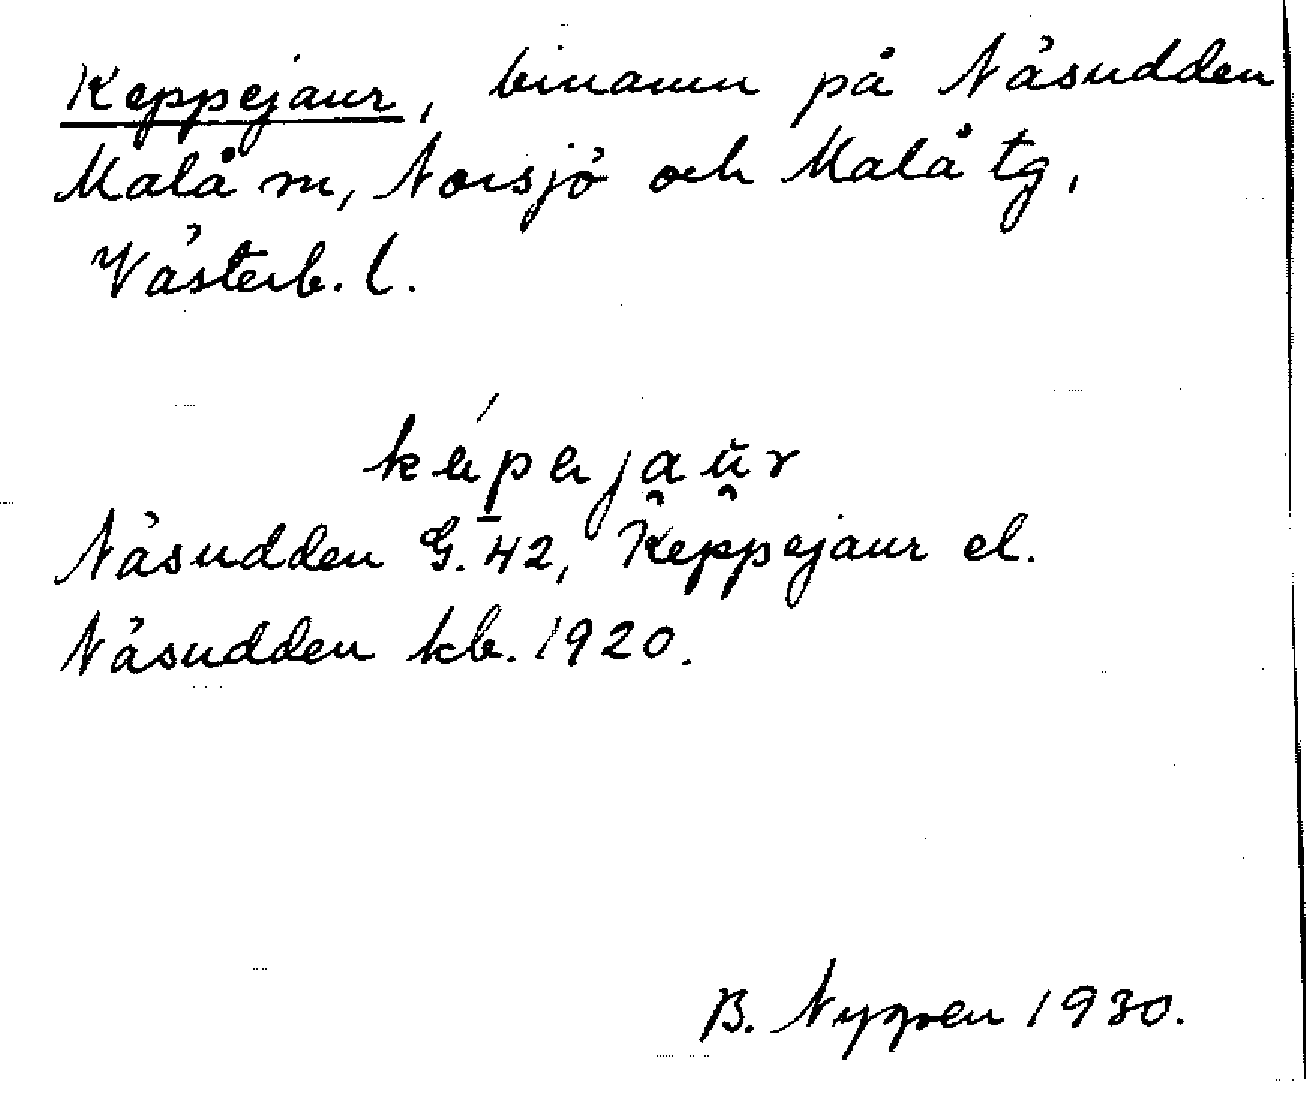 Keppejaur, binamn på Näsudden
Malå sn, Norsjö och Malå tg,
Västerb. l.
Näsudden G. 42, Keppejaur el.
Näsudden kb. 1920.
B. Nygren 1930.